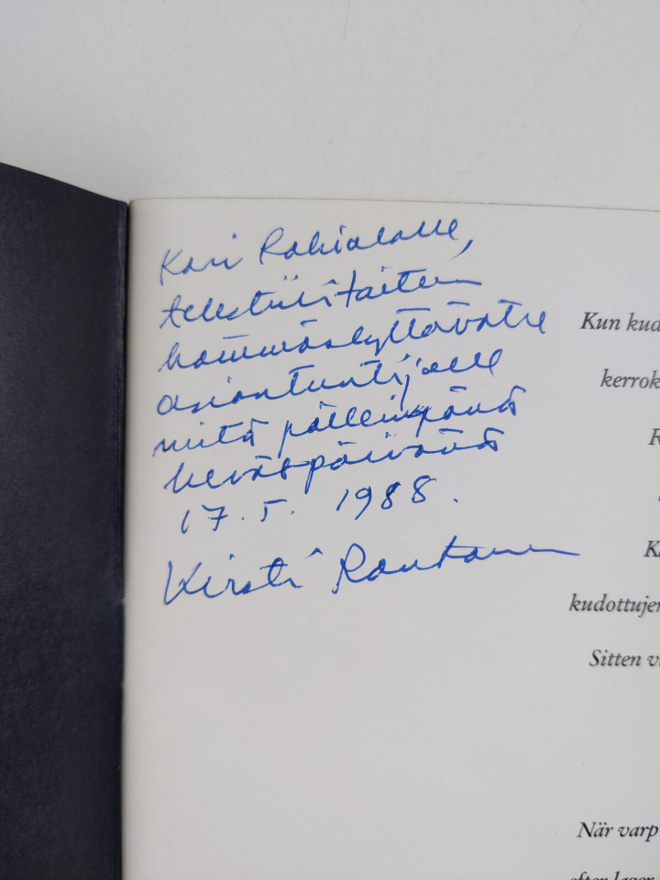 Kari Rahialalle,
tekstiilitaiteen
hämmästyttävälle
asiantuntijalle
mitä päileimpänä
keväTpäivänä
17.5. 1988.
Kirsti Rantanen
Kun kud
kerrok
R
K
kudottujen
Sitten v
När varp
efter lager